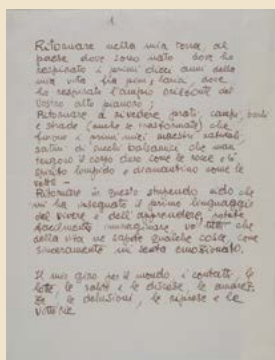 1
Ritornare nella mia terra, al
paese dove sono nato dove ho
respirato i primi dieci anni della
mia vita fra pini, lana, dove
ho respirato l'ampio orizzonte del
vostro alto pianoro;
Ritornare a rivedere prati, campi, boschi
e strade (anche se trasformate) che
furono i primi miei maestri naturali
saturi di succhi balsamici che man
tengono il corpo duro come le rocce e lo
spirito limpido e adamantino come le
vette —
Ritornare in questo stupendo nido che
mi ha insegnato il primo linguaggio
del vivere e dell'apprendere, potete
facilmente immaginare voi tutti che
della vita ne sapete qualche cosa, come
sinceramente mi senta emozionato.
Il mio giro per il mondo, i contatti, le
lotte, le salite e le discese, le amarez
ze, le delusioni, le riprese e le
vittorie